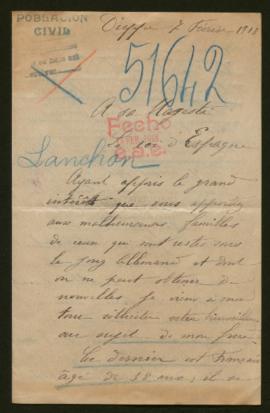 POBLACION
CIVIL
Dieppe 7 Février 1918
51642
A sa Majesté
Fecho
Le roi d'Espagne
Lanchon
Ayant appris le grand
intérêt que vous apportez
aux malheureuses familles
de ceux qui ont restés sous
le joug Allemand et dont
on ne peut obtenir de
nouvelles. Je viens à mon
tour solliciter votre bienveillance
au sujet de mon
Ce dernier est Français
âgé de 38 ans, il